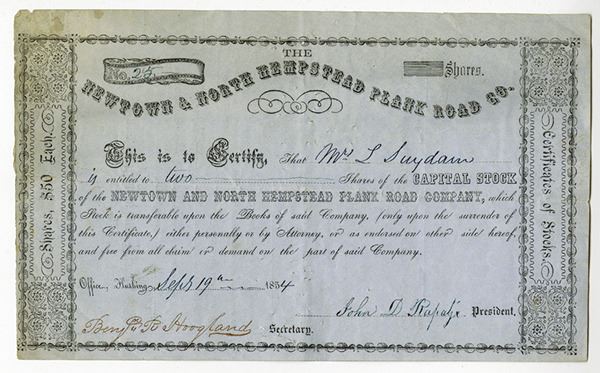 THE
No. 25
Shares.
NEWTOWN & NORTH HEMPSTEAD PLANK ROAD CO.
This is to Certify, That Mrs L Suydam
is entitled to two Shares of the CAPITAL STOCK
of the NEWTOWN AND NORTH HEMPSTEAD PLANK ROAD COMPANY, which
Stock is transferable upon the Books of said Company, (only upon the surrender of
this Certificate,) either personally or by Attorney, or as endorsed on other side hereof,
and free from all claim or demand on the part of said Company.
Office, Flushing, Sept 19th 1854
John D. Rapalje President.
Benjn. H. Hoogland Secretary.
Shares, $50 Each.
Certificates of Stocks.